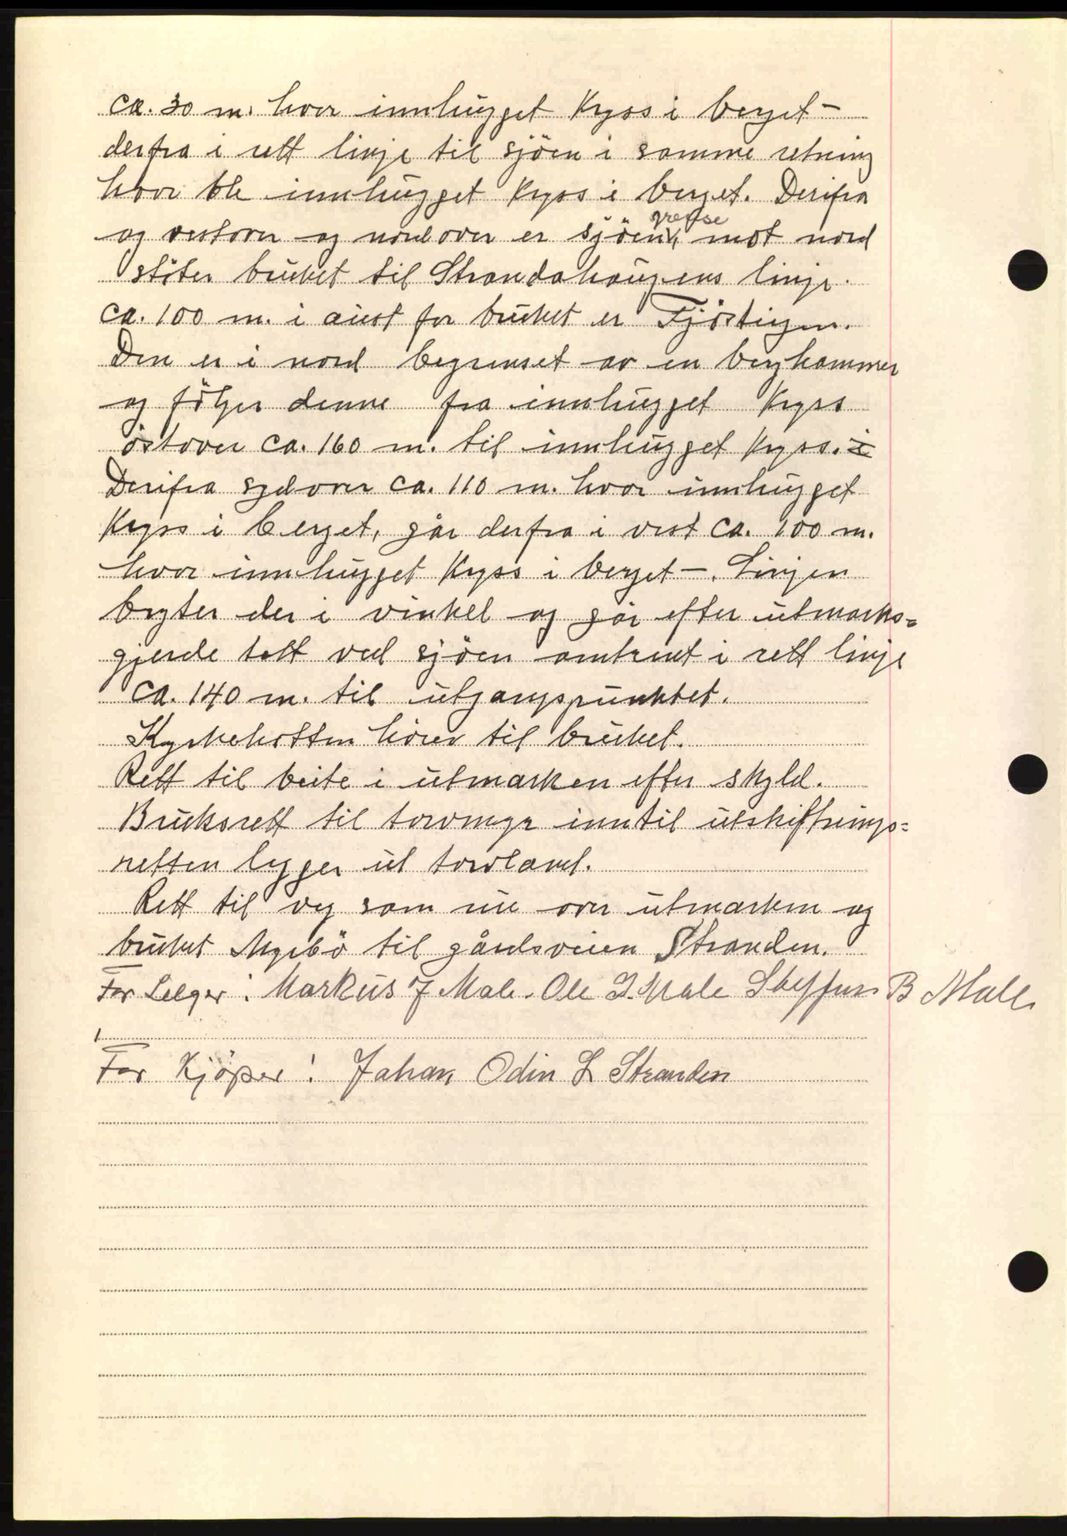 ca. 30 m. hvor innhugget kryss i berget –
derfra i rett linje til sjöen i samme retning
hvor ble innhugget kryss i berget. Derifra
og vestover og nordover er sjöen grense mot nord
stöter bruket til Strandahaugens linje.
ca. 100 m. i aust for bruket er Fjösteigen.
Den er i nord begrenset av en berghammer
og fölger denne fra innhugget kryss
östover ca. 160 m. til innhugget kryss. i
Derifra sydover ca. 110 m. hvor innhugget
kryss i berget, går derfra i vest ca. 100 m.
hvor innhugget kryss i berget –. Linjen
bryter der i vinkel og går efter utmarks=
gjerde tett ved sjöen omtrent i rett linje
ca. 140 m. til utgangspunktet.
hörer til bruket.
Rett til beite i utmarken efter skyld.
Bruksrett til torvmyr inntil utskiftnings=
retten legger ut torvland.
Rett til veg som nu over utmarken og
bruket Myrbö til gårdsveien Stranden.
For Selger: Markus J Male. Ole I. Male Steffen B Male
For Kjöper: Johan Odin L Stranden